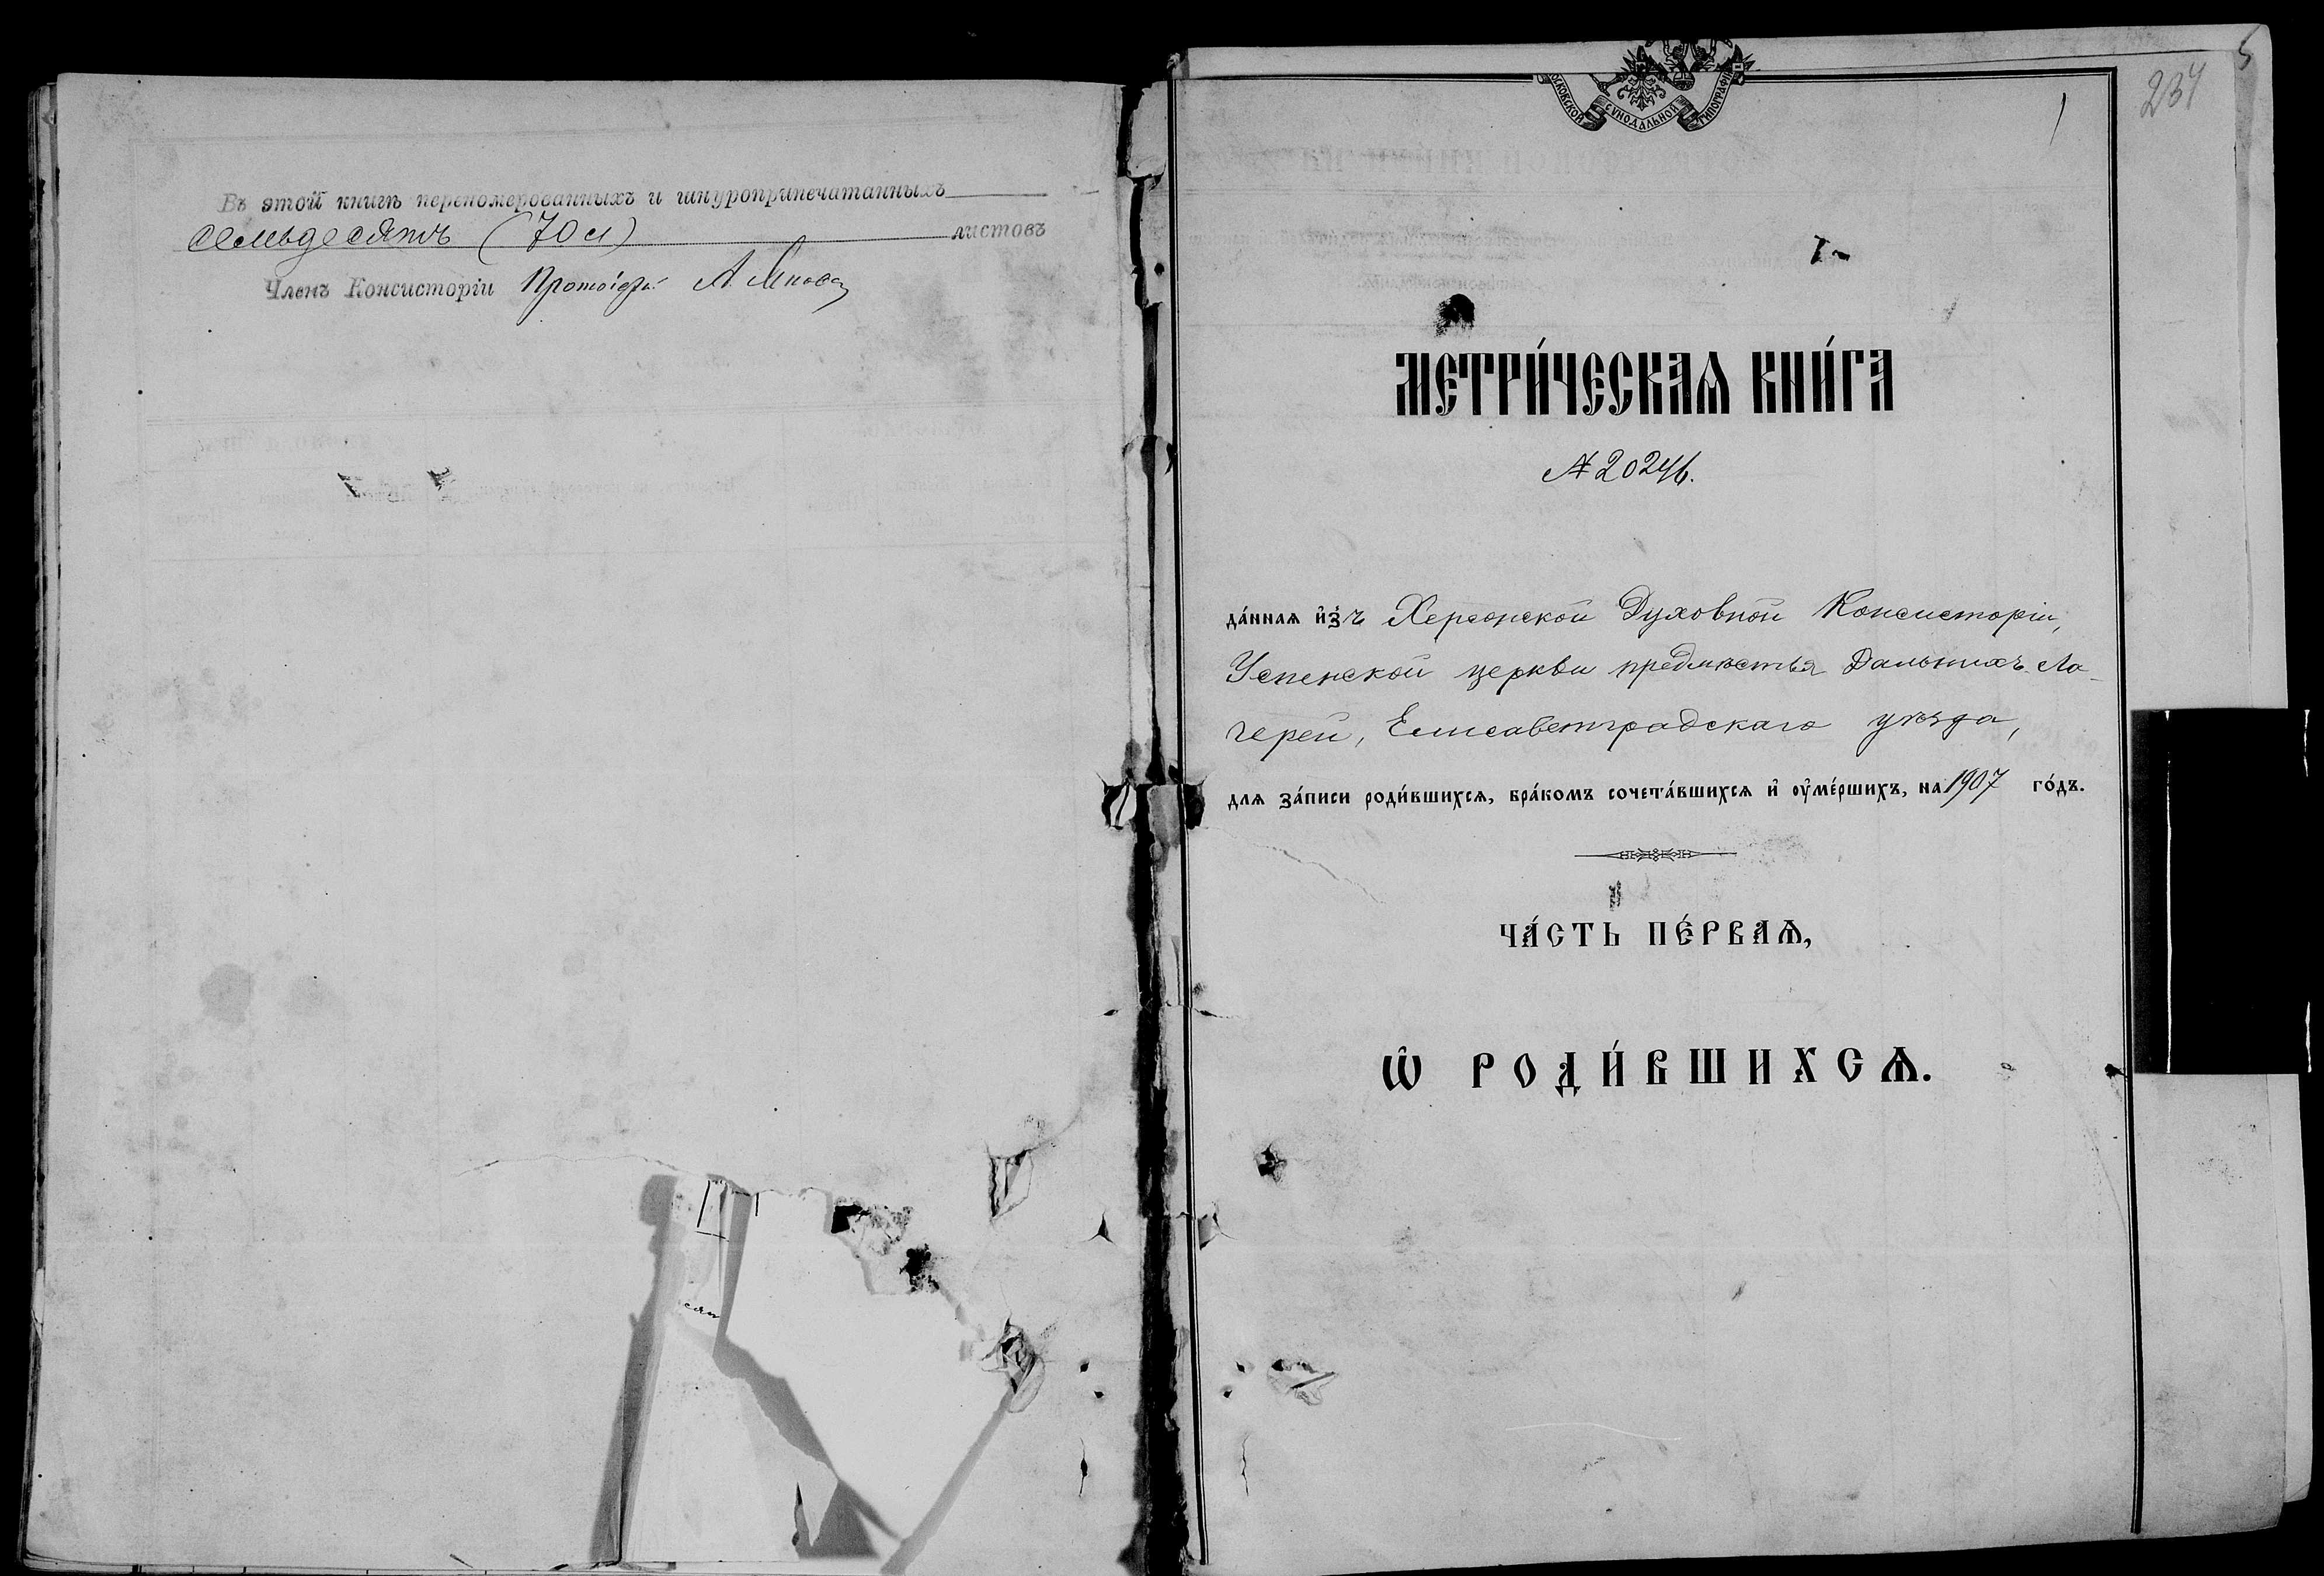 Въ этой книгѣ перепомерованныхъ и шнуроприпечатанныхъ
семьдесятъ (70 л) листовъ
Членъ Консисторіи Протоіерей А.
МОСКОВСКОЙ СѴНОДАЛЬНОЙ ТИПОГРАФІИ
1
234
5
I
МЕТРИ́ЧЕСКАѦ КНИ́ГА
№ 20246.
да́ннаѧ и҆зъ Херсонской Духовной Консисторіи,
Успенской церкви предмѣстья Дальнихъ Ла-
герей, Елисаветградскаго уѣзда,
длѧ за́писи роди́вшихсѧ, бра́комъ сочета́вшихсѧ и҆ оу҆ме́ршихъ, на 1907 го́дъ.
ЧА́СТЬ ПЕ́РВАѦ,
Ѡ҆ РОДИ́ВШИХСѦ.